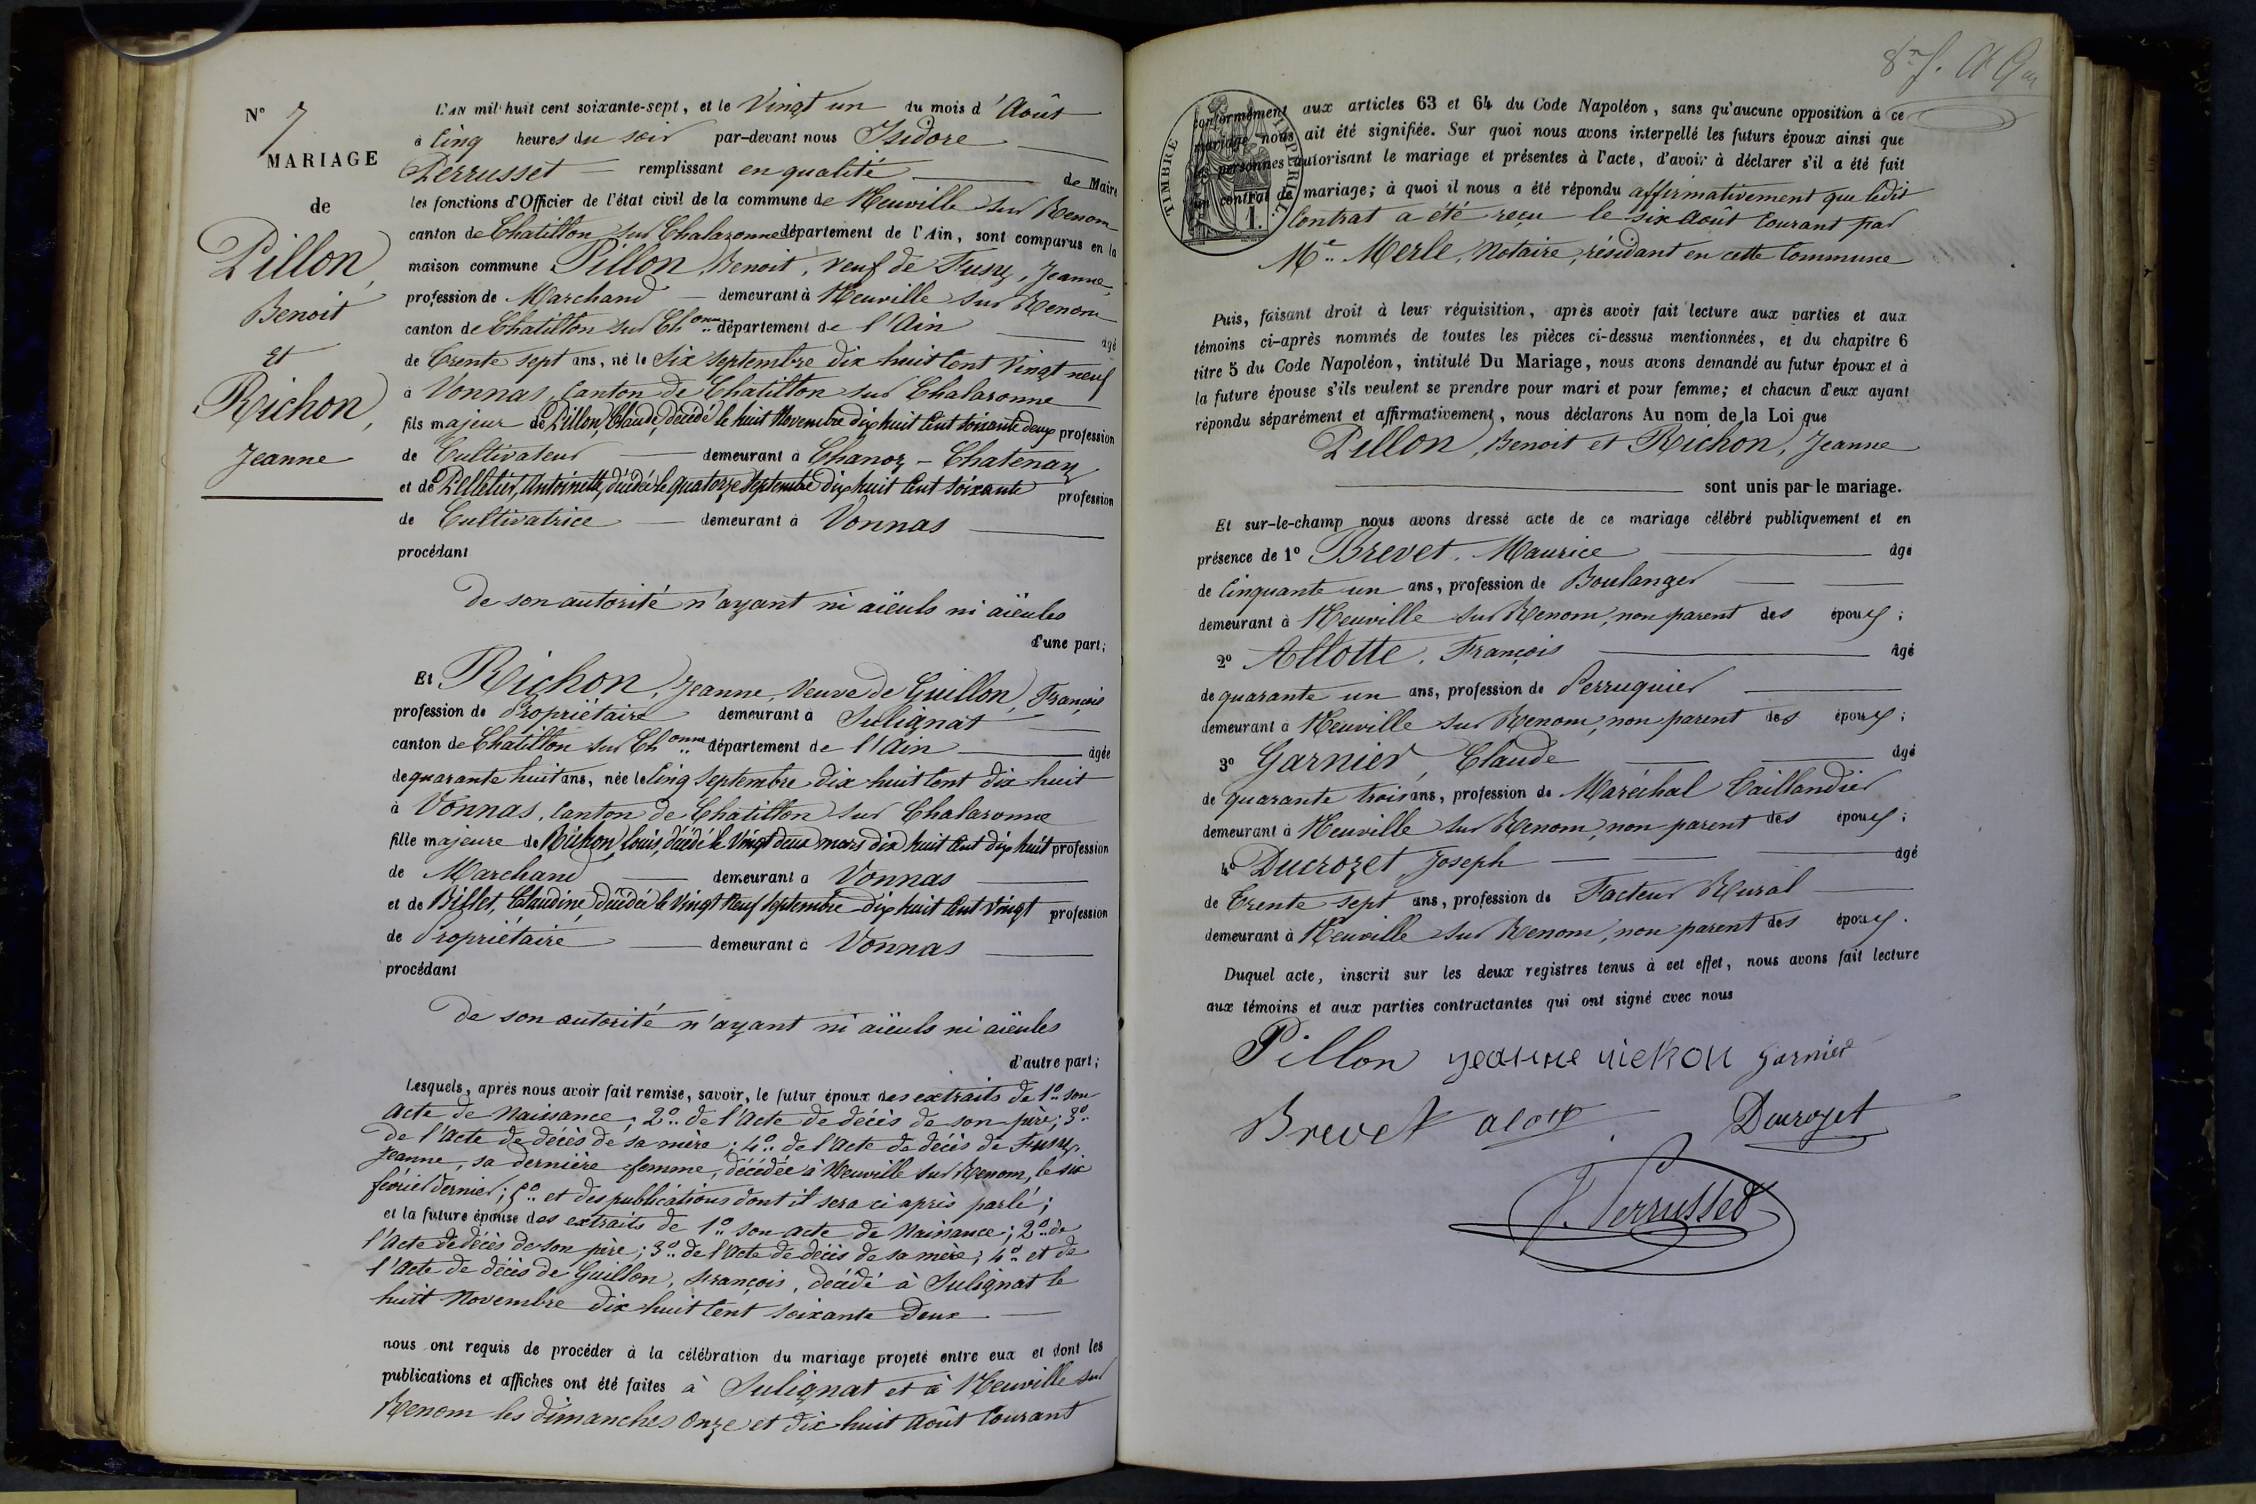 N° 7
MARIAGE
de
Pillon,
Benoit
Et
Richon,
Jeanne
L'AN mil huit cent soixante-sept, et le Vingt un du mois d'Août
à Cinq heures du soir par-devant nous Isidore
Perrusset remplissant en qualité de Maire
les fonctions d'Officier de l'état civil de la commune de Neuville sur Renom
canton de Chatillon sur Chalaronne département de l'Ain, sont comparus en la
maison commune Pillon, Benoit, veuf de Fusy, Jeanne,
profession de Marchand demeurant à Neuville sur Renom
canton de Chatillon sur Chonne département de l'Ain âgé
de Trente sept ans, né le Six Septembre dix huit Cent Vingt neuf
à Vonnas, Canton de Chatillon sur Chalaronne
fils majeur de Pillon, Claude, décédé le huit Novembre dix huit Cent soixante deux profession
de Cultivateur demeurant à Chanoz-Chatenay
et de Pelletier, Antoinette, décédée le quatorze Septembre dix huit Cent soixante profession
de Cultivatrice demeurant à Vonnas
procédant
de son autorité n'ayant ni aïeuls ni aïeules
d'une part;
Et Richon, Jeanne, Veuve de Guillon, François
profession de Propriétaire demeurant à Sulignat
canton de Chatillon sur Chonne département de l'Ain âgée
de quarante huit ans, née le Cinq Septembre dix huit Cent dix huit
à Vonnas, Canton de Chatillon sur Chalaronne
fille majeure de Richon, Louis, décédé le Vingt deux mars dix huit Cent dix huit profession
de Marchand demeurant à Vonnas
et de Billet, Claudine, décédée le Vingt Neuf Septembre dix huit Cent Vingt profession
de Propriétaire demeurant à Vonnas
procédant
de son autorité n'ayant ni aïeuls ni aïeules
d'autre part;
Lesquels, après nous avoir fait remise, savoir, le futur époux des extraits de 1° son
acte de Naissance; 2° de l'Acte de décès de son père; 3°
de l'Acte de décès de sa mère; 4° de l'Acte de décès de Fusy,
Jeanne, sa dernière femme, décédée à Neuville sur Renom, le six
février dernier; 5° et des publications dont il sera ci après parlé;
et la future épouse des extraits de 1° son acte de Naissance; 2° de
l'Acte de décès de son père; 3° de l'Acte de décès de sa mère; 4° et de
l'Acte de décès de Guillon, François, décédé à Sulignat le
huit Novembre dix huit Cent soixante deux
nous ont requis de procéder à la célébration du mariage projeté entre eux et dont les
publications et affiches ont été faites à Sulignat et à Neuville sur
Renom les dimanches Onze et dix huit Août Courant
TIMBRE IMPÉRIAL
conformément aux articles 63 et 64 du Code Napoléon, sans qu'aucune opposition à ce
mariage nous ait été signifiée. Sur quoi nous avons interpellé les futurs époux ainsi que
les personnes autorisant le mariage et présentes à l'acte, d'avoir à déclarer s'il a été fait
un contrat de mariage; à quoi il nous a été répondu affirmativement que ledit
Contrat a été reçu le six Août Courant par
Me Merle, Notaire, résidant en cette Commune
Puis, faisant droit à leur réquisition, après avoir fait lecture aux parties et aux
témoins ci-après nommés de toutes les pièces ci-dessus mentionnées, et du chapitre 6
titre 5 du Code Napoléon, intitulé Du Mariage, nous avons demandé au futur époux et à
la future épouse s'ils veulent se prendre pour mari et pour femme; et chacun d'eux ayant
répondu séparément et affirmativement, nous déclarons Au nom de la Loi que
Pillon, Benoit et Richon, Jeanne
sont unis par le mariage.
Et sur-le-champ nous avons dressé acte de ce mariage célébré publiquement et en
présence de 1° Brevet, Maurice âgé
de Cinquante un ans, profession de Boulanger
demeurant à Neuville sur Renom, non parent des époux;
2° Allotte, François âgé
de quarante un ans, profession de Perruquier
demeurant à Neuville sur Renom, non parent des époux;
3° Garnier, Claude âgé
de quarante trois ans, profession de Maréchal Taillandier
demeurant à Neuville sur Renom, non parent des époux;
4° Ducrozet, Joseph âgé
de Trente sept ans, profession de Facteur Rural
demeurant à Neuville sur Renom, non parent des époux.
Duquel acte, inscrit sur les deux registres tenus à cet effet, nous avons fait lecture
aux témoins et aux parties contractantes qui ont signé avec nous
Pillon jeanne richon garnier
Brevet alott Ducrozet
J. Perrusset